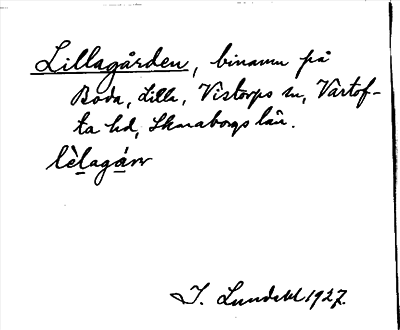 Lillagården, binamn på
Boda, Lilla, Vistorps sn, Vartof-
ta hd, Skaraborgs län.
lèlagánr
I. Lundahl 1927.